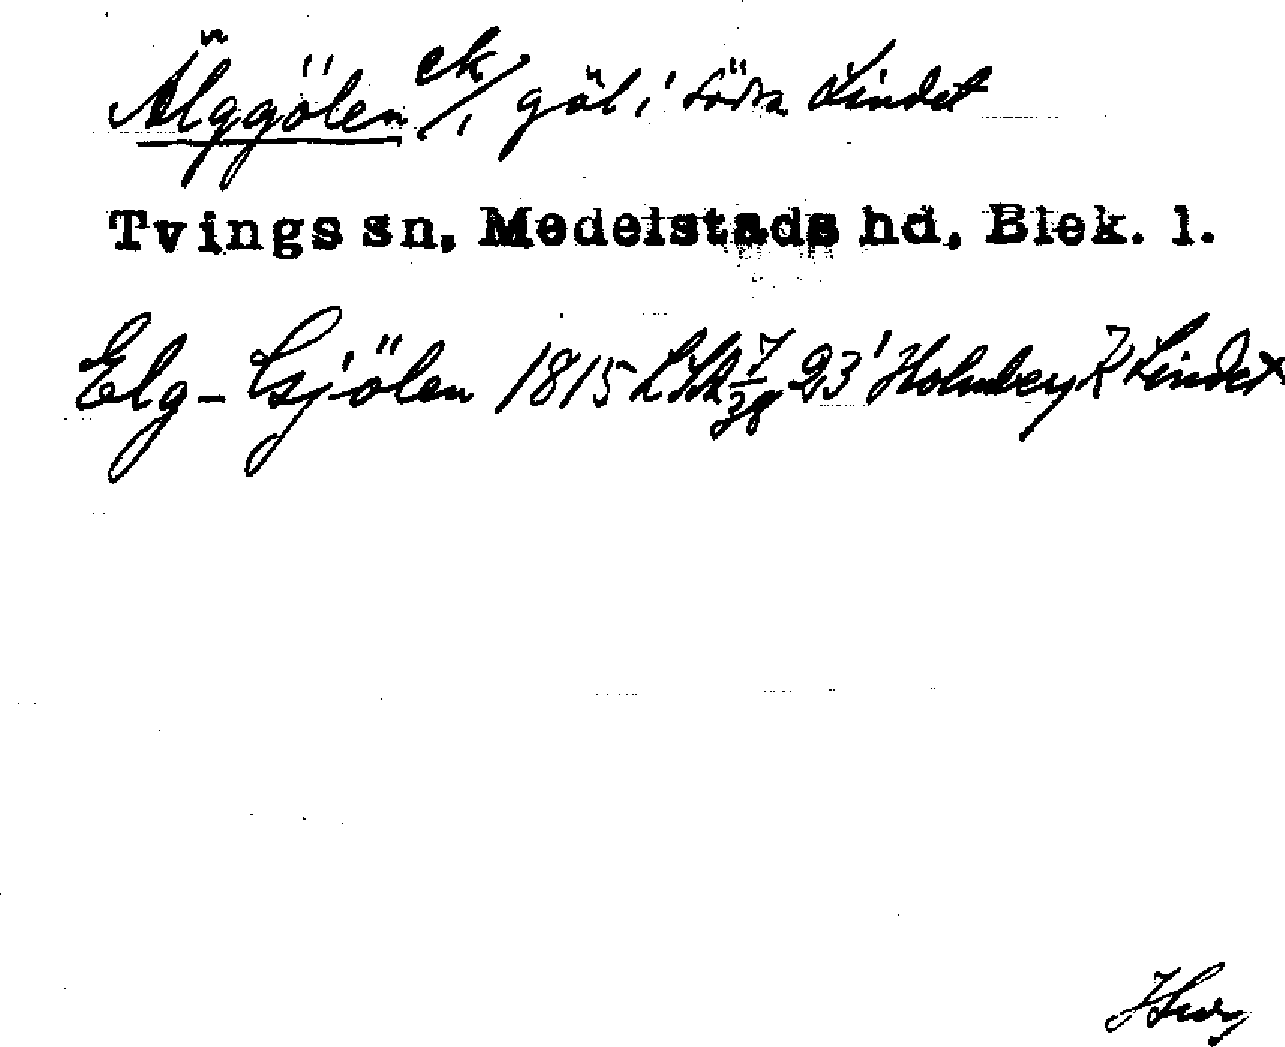 Älggölen ek/, göl i södra Lindet
Tvings sn, Medelstads hd, Blek. l.
Elg-Gsjölen 1815 LSA 7/38 23 Holmberg Lindet